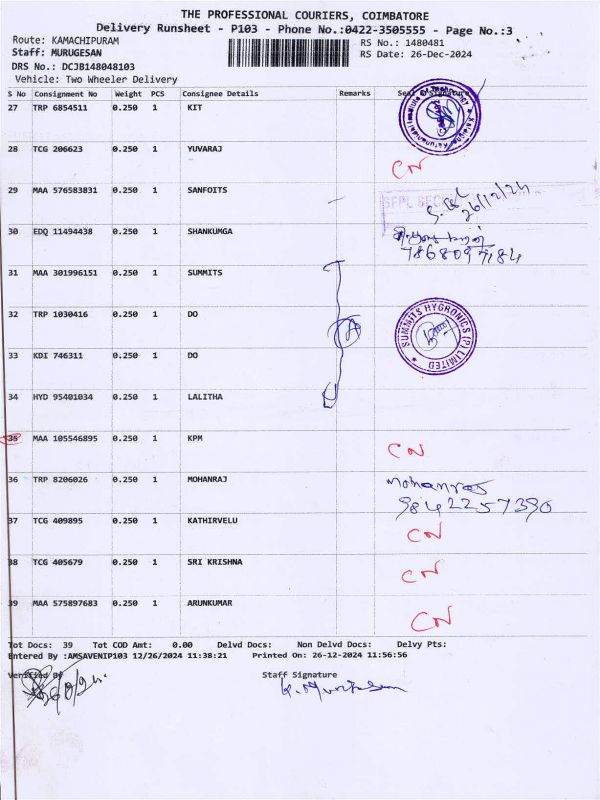 THE PROFESSIONAL COURIERS, COIMBATORE
Delivery Runsheet - P103 - Phone No.:0422-3505555 - Page No.:3
Route: KAMACHIPURAM RS No.: 1480481
Staff: MURUGESAN RS Date: 26-Dec-2024
DRS No.: DCJB148048103
Vehicle: Two Wheeler Delivery
S No Consignment No Weight PCS Consignee Details Remarks Seal & Signature
27 TRP 6854511 0.250 1 KIT
28 TCG 206623 0.250 1 YUVARAJ CN
29 MAA 576583831 0.250 1 SANFOITS
26/12/24
30 EDQ 11494438 0.250 1 SHANKUMGA
7868097184
31 MAA 301996151 0.250 1 SUMMITS
32 TRP 1030416 0.250 1 DO
SUMMITS HYGRONICS (P) LIMITED
33 KDI 746311 0.250 1 DO
34 HYD 95401034 0.250 1 LALITHA
35 MAA 105546895 0.250 1 KPM CN
36 TRP 8206026 0.250 1 MOHANRAJ Mohanraj
9842257390
37 TCG 409895 0.250 1 KATHIRVELU CN
38 TCG 405679 0.250 1 SRI KRISHNA CN
39 MAA 575897683 0.250 1 ARUNKUMAR CN
Tot Docs: 39 Tot COD Amt: 0.00 Delvd Docs: Non Delvd Docs: Delvy Pts:
Entered By :AMSAVENIP103 12/26/2024 11:38:21 Printed On: 26-12-2024 11:56:56
Verified By Staff Signature